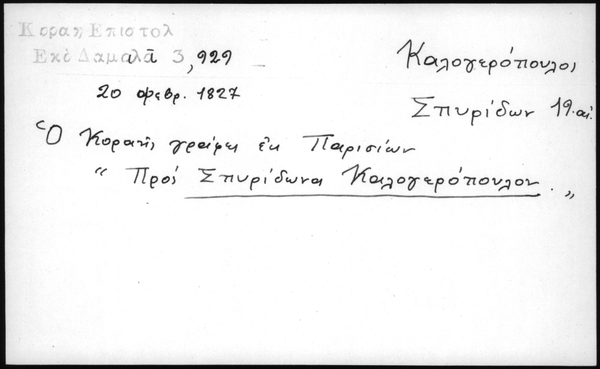 Κοραη Επιστολ
Εκδ Δαμαλᾶ 3, 929
Καλογερόπουλος
20 φεβρ. 1827
Σπυρίδων 19. αἰ.
Ὁ Κοραῆς γράφει ἐκ Παρισίων
“ Πρός Σπυρίδωνα Καλογερόπουλον. „